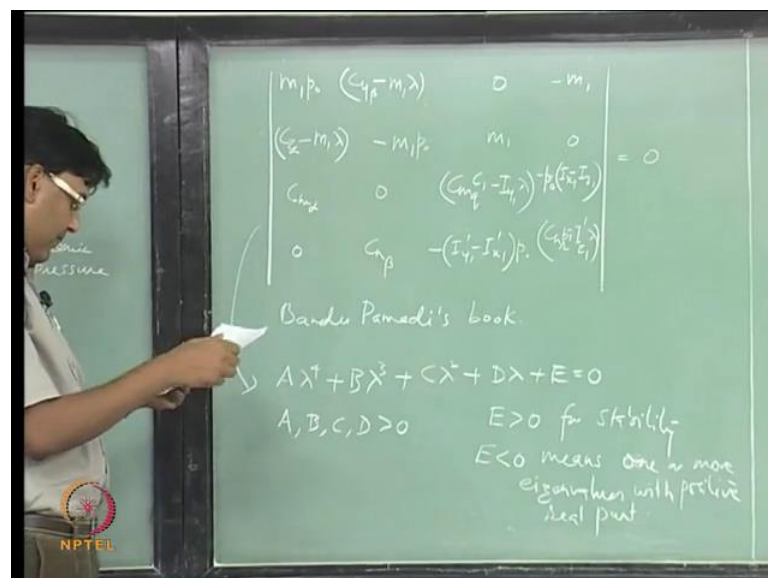 m₁p₀ (C_yβ − m₁λ) 0 −m₁
(C_zα − m₁λ) −m₁p₀ m₁ 0 = 0
C_mα 0 (C_mq c₁ − I_y₁λ) −p₀(I_x₁ − I_z₁)
0 C_nβ −(I'_y₁ − I'_x₁)p₀
Bandu Pamadi's book.
pressure
Aλ⁴ + Bλ³ + Cλ² + Dλ + E = 0
A, B, C, D > 0 E > 0 for stability
E < 0 means one or more
eigenvalues with positive
real part.
NPTEL